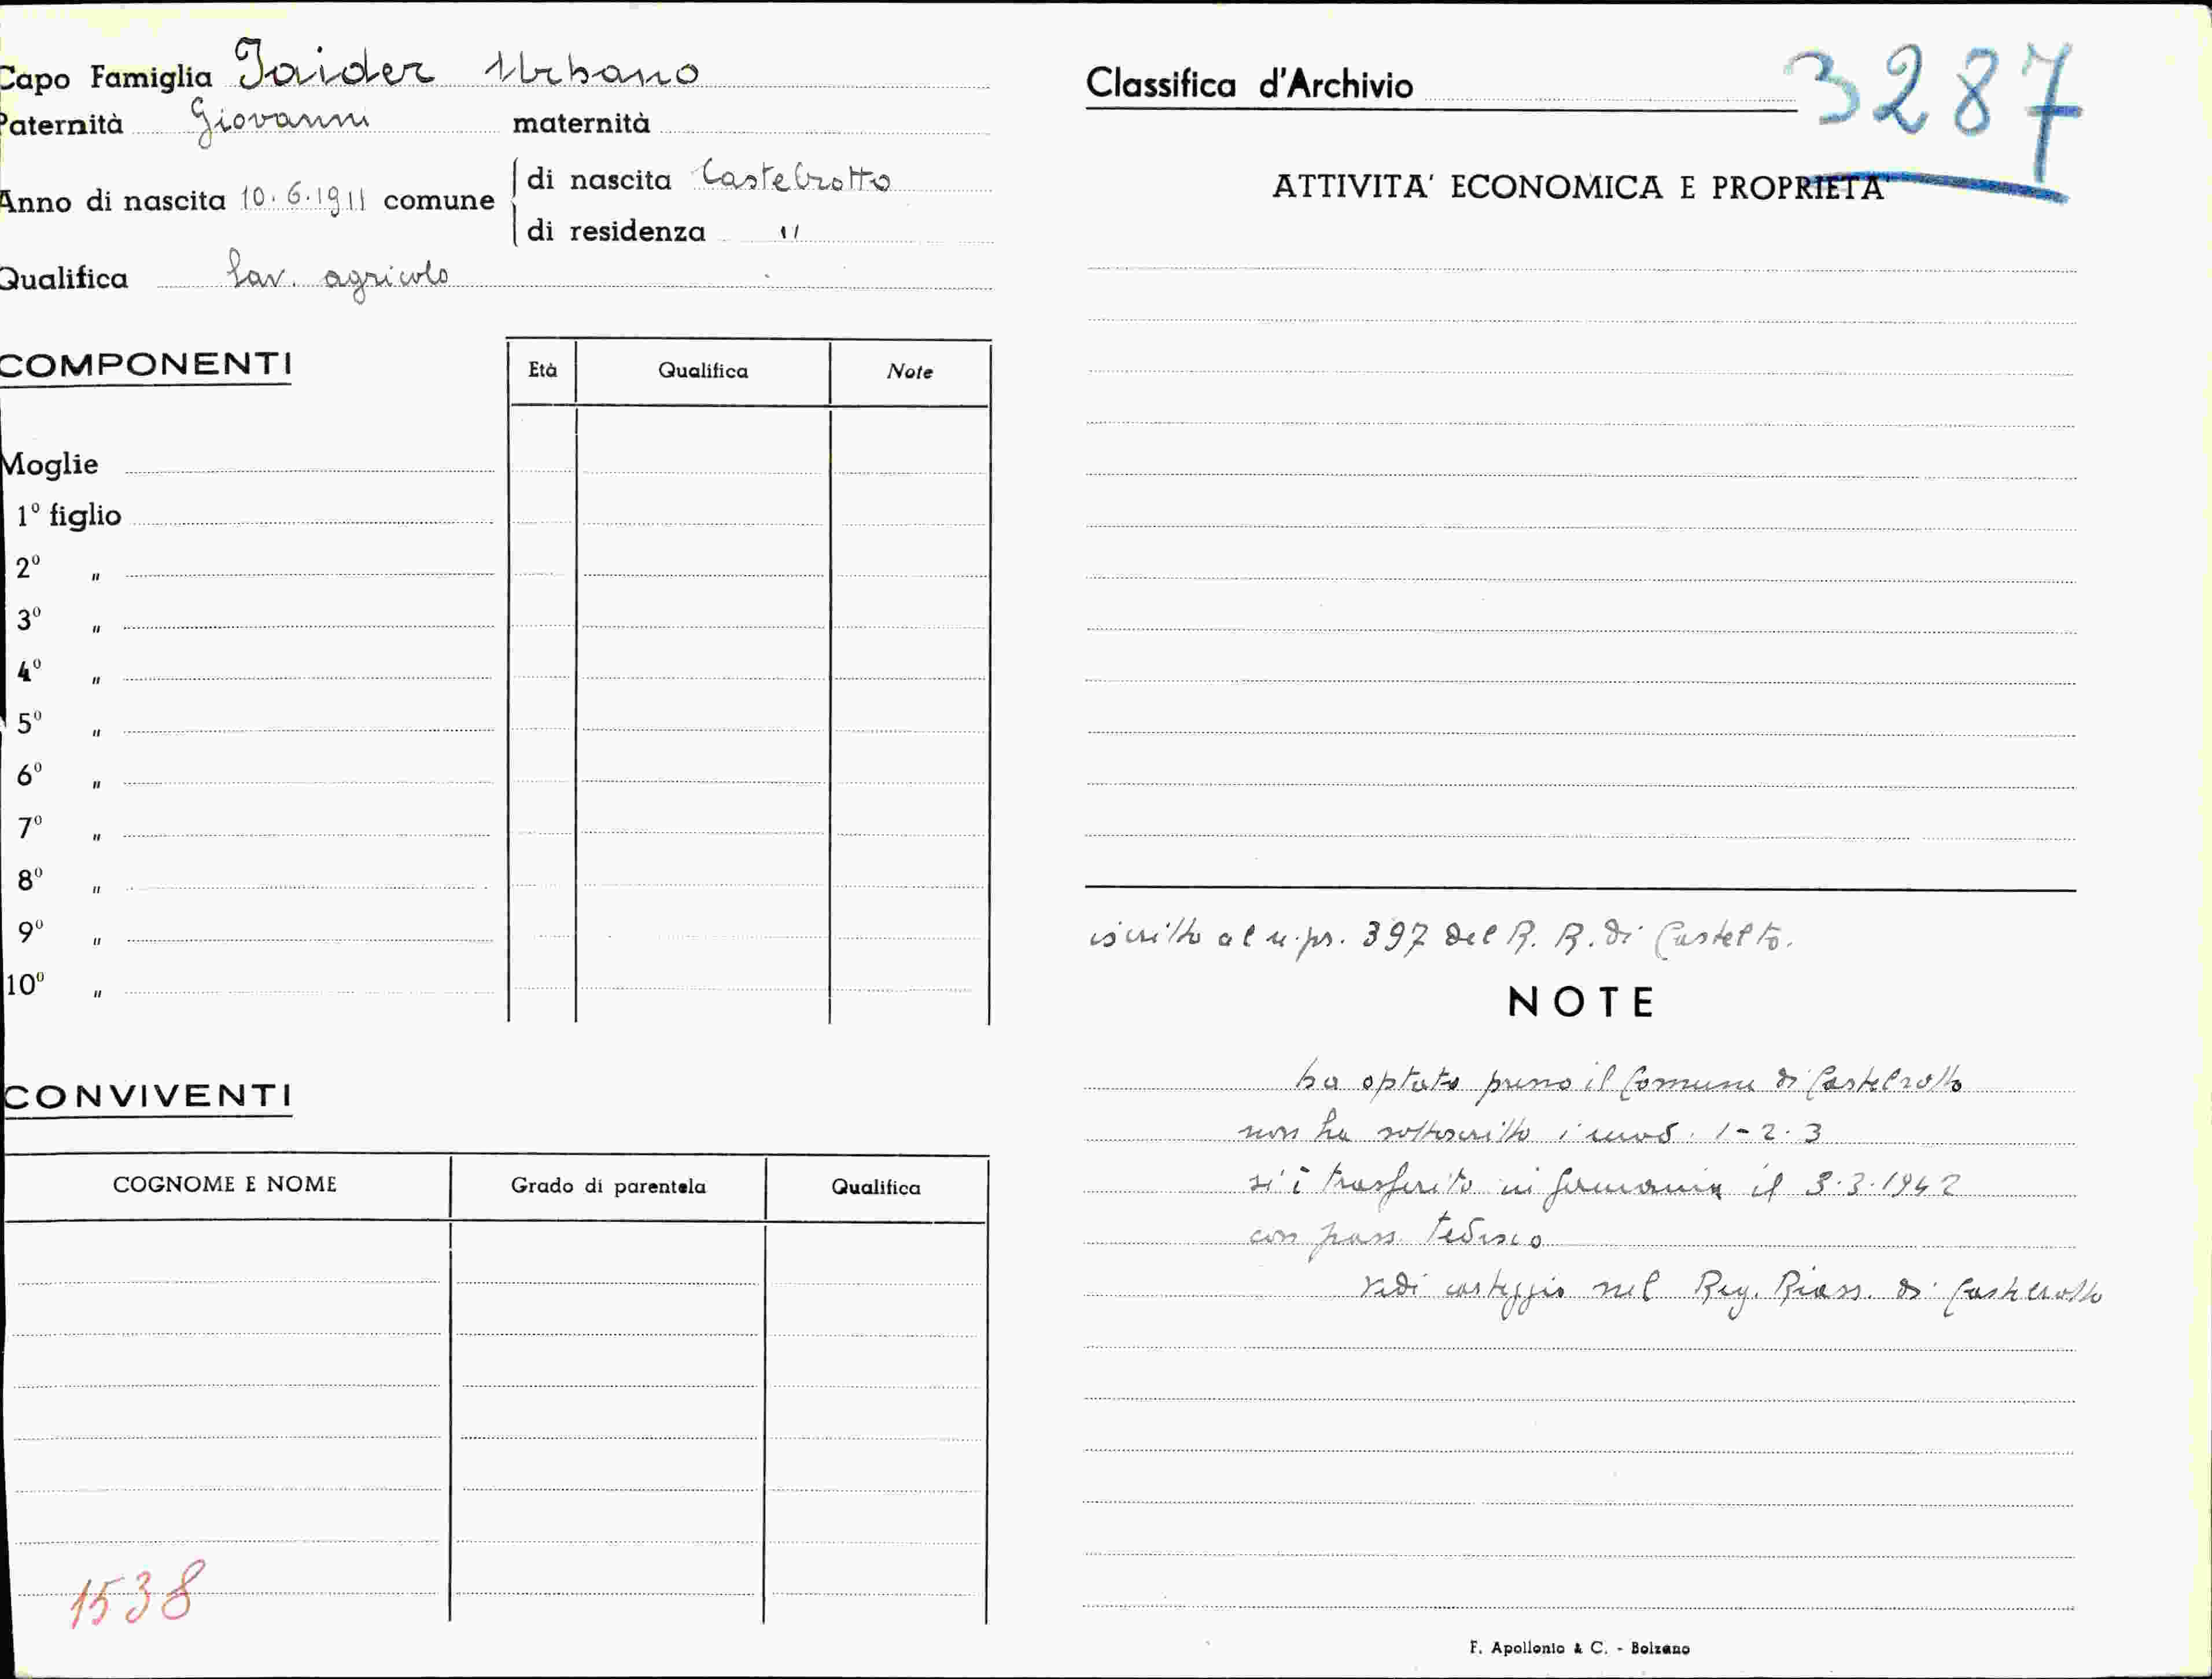 Capo Famiglia Jaider Urbano
Paternità Giovanni maternità
Anno di nascita 10.6.1911 comune di nascita Castelrotto
di residenza "
Qualifica Lav. agricolo
COMPONENTI
Età Qualifica Note
Moglie
1º figlio
2º "
3º "
4º "
5º "
6º "
7º "
8º "
9º "
10º "
CONVIVENTI
COGNOME E NOME Grado di parentela Qualifica
1538
Classifica d'Archivio 3287
ATTIVITA' ECONOMICA E PROPRIETA'
iscritto al n. pr. 397 del R. R. di Castelto.
NOTE
ha optato presso il Comune di Castelrotto
non ha sottoscritto i mod. 1-2-3
si è trasferito in Germania il 3.3.1942
con pass. tedesco
vedi carteggio nel Reg. Riass. di Castelrotto
F. Apollonio & C. - Bolzano